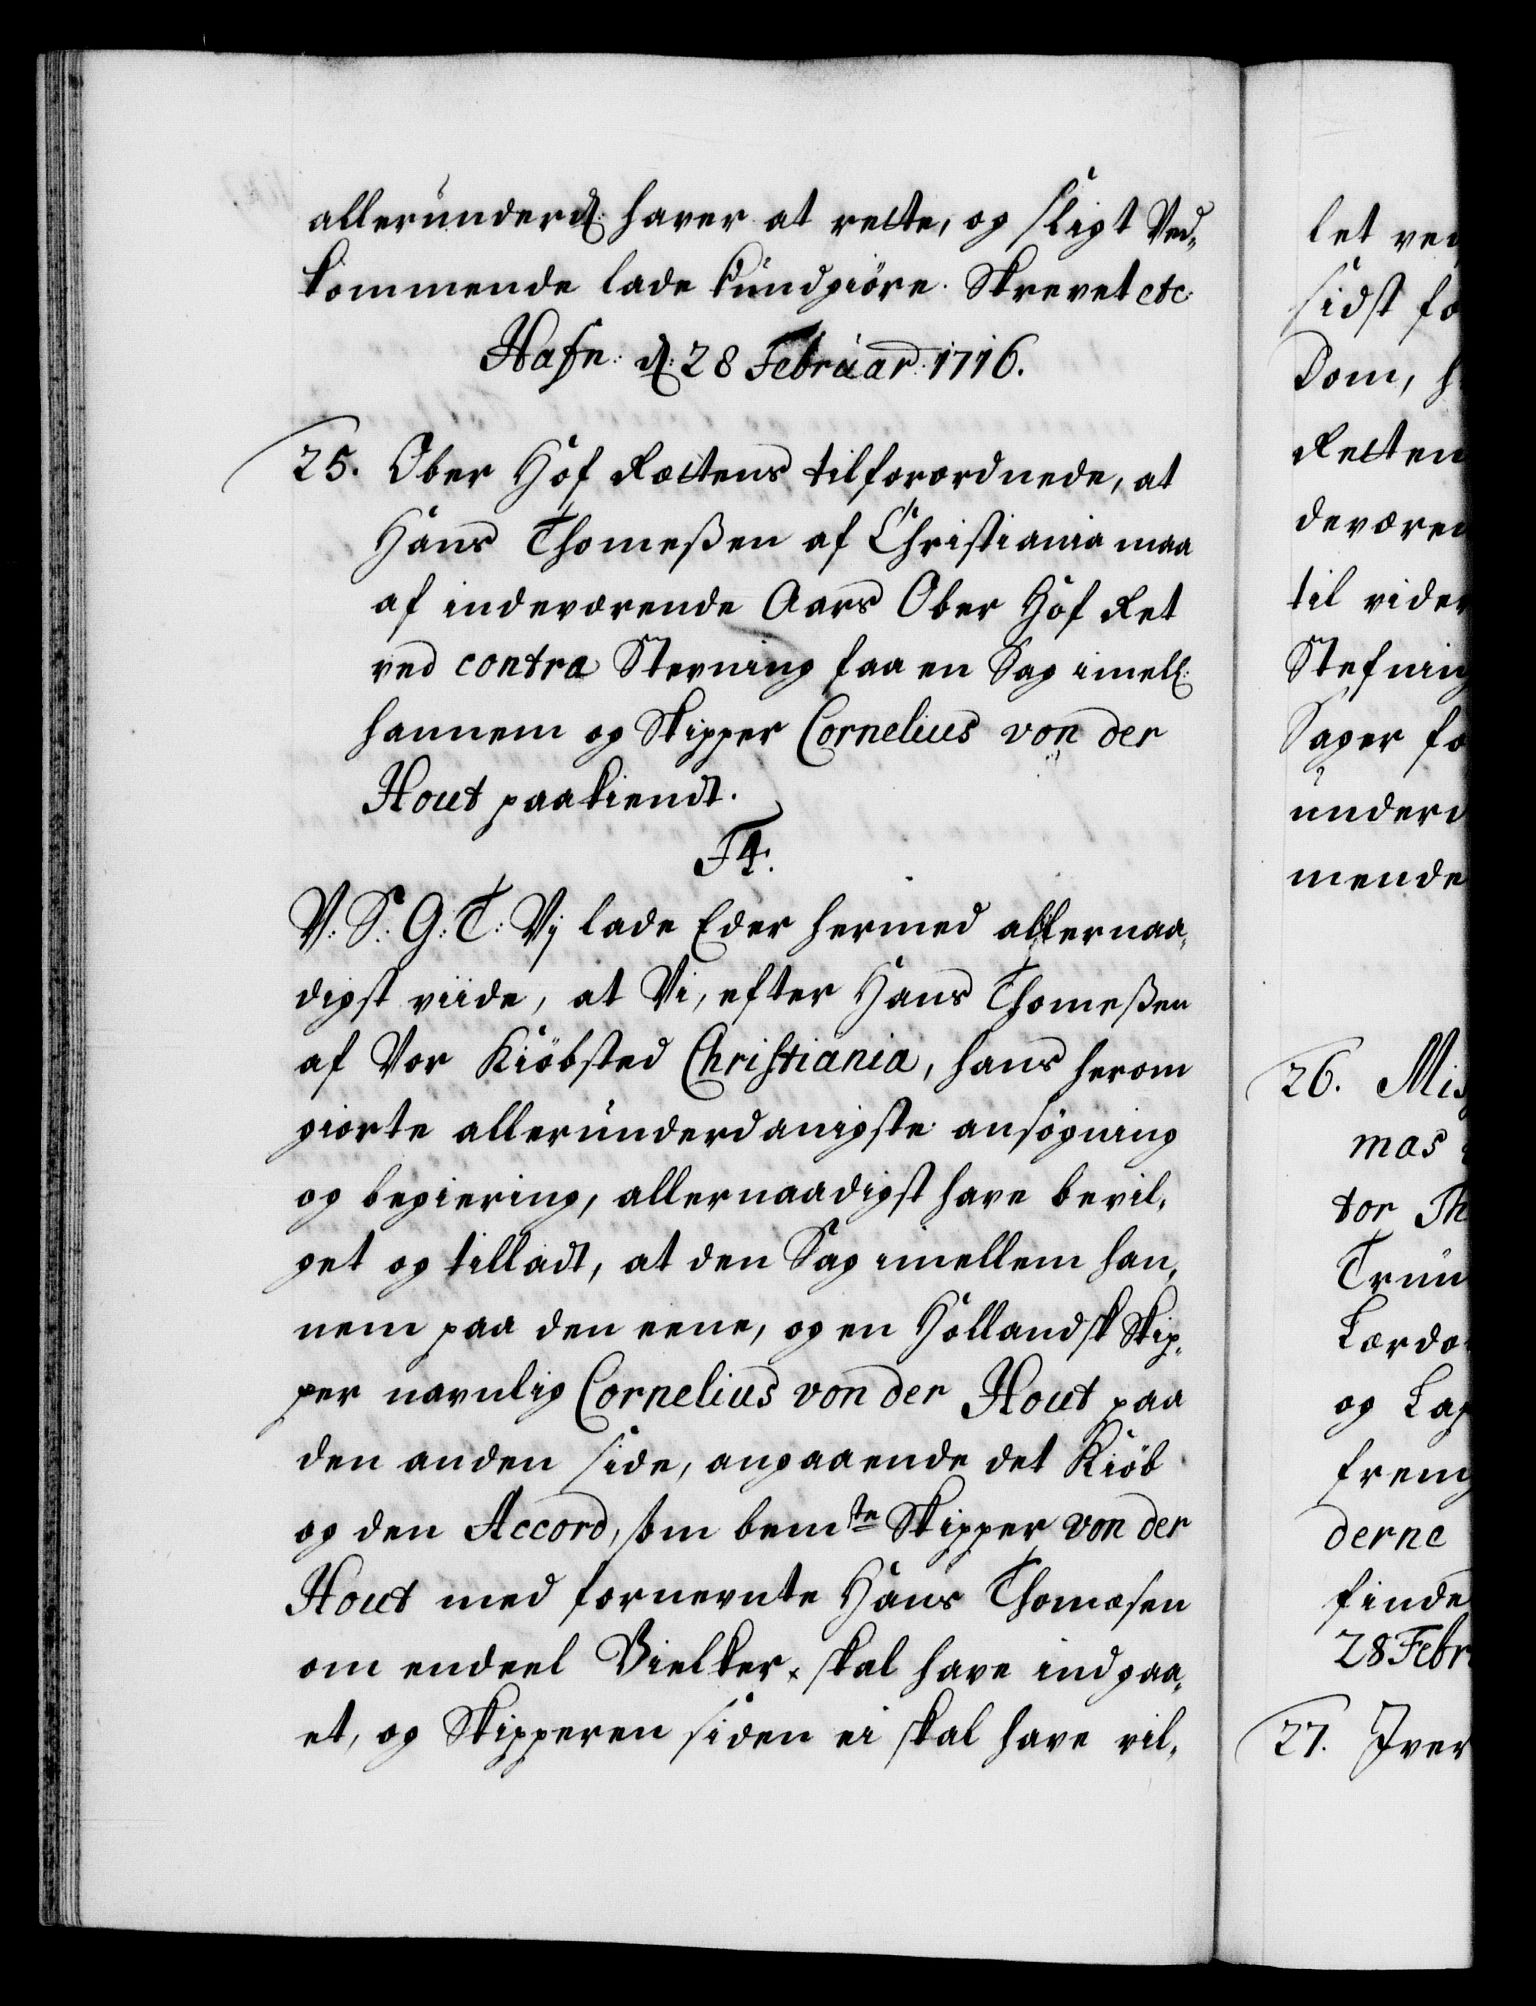 allerunderd: haver at rette, og sligt Ved,
kommende lade kundgiöre. Skrevet etc
Hafn: d: 28 Februar: 1716.
25. Ober Hof Rettens tilforordnede, at
Hans Thomeßen af Christiania maa
af indeværende Aars Ober Hof Ret
ved contra Stevning faa en Sag imell:
hannem og Skipper Cornelius von der
Hout paakiendt.
F4.
V: S: G: T: Vj lade Eder hermed allernaa,
digst viide, at Vi, efter Hans Thomeßen
af Vor Kiöbsted Christiania, hans herom
giorte allerunderdanigste ansögning
og begiering, allernaadigst have bevil,
get og tilladt, at den Sag imellem han,
nem paa den eene, og en Hollandsk Skip,
per navnlig Cornelius von der Hout paa
den anden side, angaaende det Kiöb
og den Accord, som bemte Skipper von der
Hout med fornevnte Hans Thomæsen
om endeel Bielker skal have indgaa,
et, og Skipperen siden ei skal have vil,
let ved
sidst fo
Dom, h
Retten
deværen
til vider
Stefning
Sager fo
underd
mende
26. Mis
mas
tor Th
Trun
Lærda
og Lag
frem
derne
finde
28 Febr
27. Iver